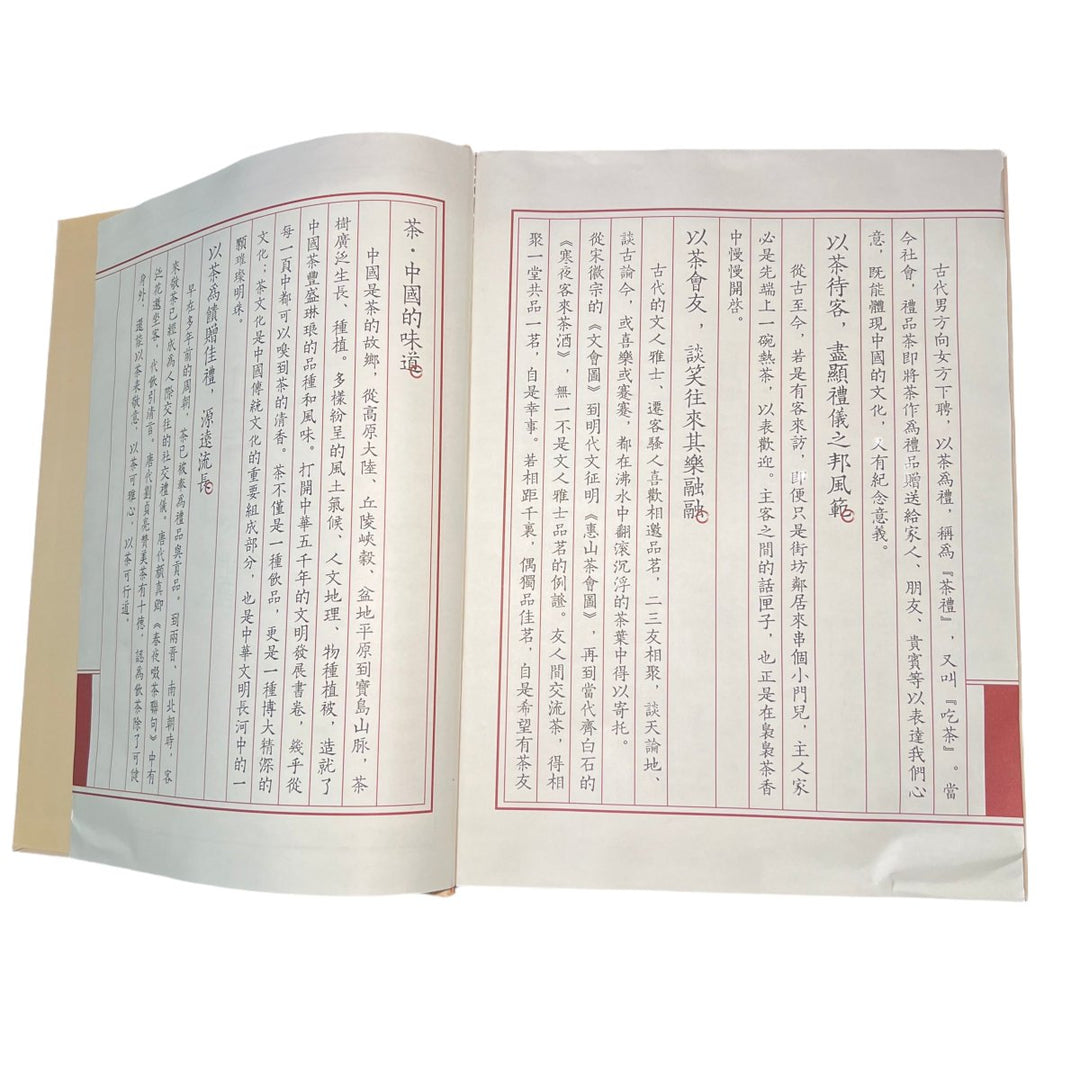 茶·中國的味道
中國是茶的故鄉，從高原大陸、丘陵峽穀、盆地平原到寶島山脈，茶
樹廣泛生長、種植。多樣紛呈的風土氣候、人文地理、物種植被，造就了
中國茶豐盛琳琅的品種和風味。打開中華五千年的文明發展書卷，幾乎從
每一頁中都可以嗅到茶的清香。茶不僅是一種飲品，更是一種博大精深的
文化；茶文化是中國傳統文化的重要組成部分，也是中華文明長河中的一
顆璀璨明珠。
以茶為饋贈佳禮，源遠流長
早在多年前的周朝，茶已被奉為禮品與貢品。到兩晉、南北朝時，客
來敬茶已經成為人際交往的社交禮儀。唐代顏真卿《春夜啜茶聯句》中有
泛花邀坐客，代飲引清言。唐代劉貞亮贊美茶有十德，認為飲茶除了可健
身外，還能以茶表敬意，以茶可雅心，以茶可行道。
古代男方向女方下聘，以茶為禮，稱為『茶禮』，又叫『吃茶』。當
今社會，禮品茶即將茶作為禮品贈送給家人、朋友、貴賓等以表達我們心
意，既能體現中國的文化，又有紀念意義。
以茶待客，盡顯禮儀之邦風範
從古至今，若是有客來訪，即便只是街坊鄰居來串個小門兒，主人家
必是先端上一碗熱茶，以表歡迎。主客之間的話匣子，也正是在裊裊茶香
中慢慢開啓。
以茶會友，談笑往來其樂融融
古代的文人雅士、遷客騷人喜歡相邀品茗，二三友相聚，談天論地、
談古論今，或喜樂或蹇蹇，都在沸水中翻滾沉浮的茶葉中得以寄托。
從宋徽宗的《文會圖》到明代文征明《惠山茶會圖》，再到當代齊白石的
《寒夜客來茶酒》，無一不是文人雅士品茗的例證。友人間交流茶，得相
聚一堂共品一茗，自是幸事。若相距千裏，偶獨品佳茗，自是希望有茶友